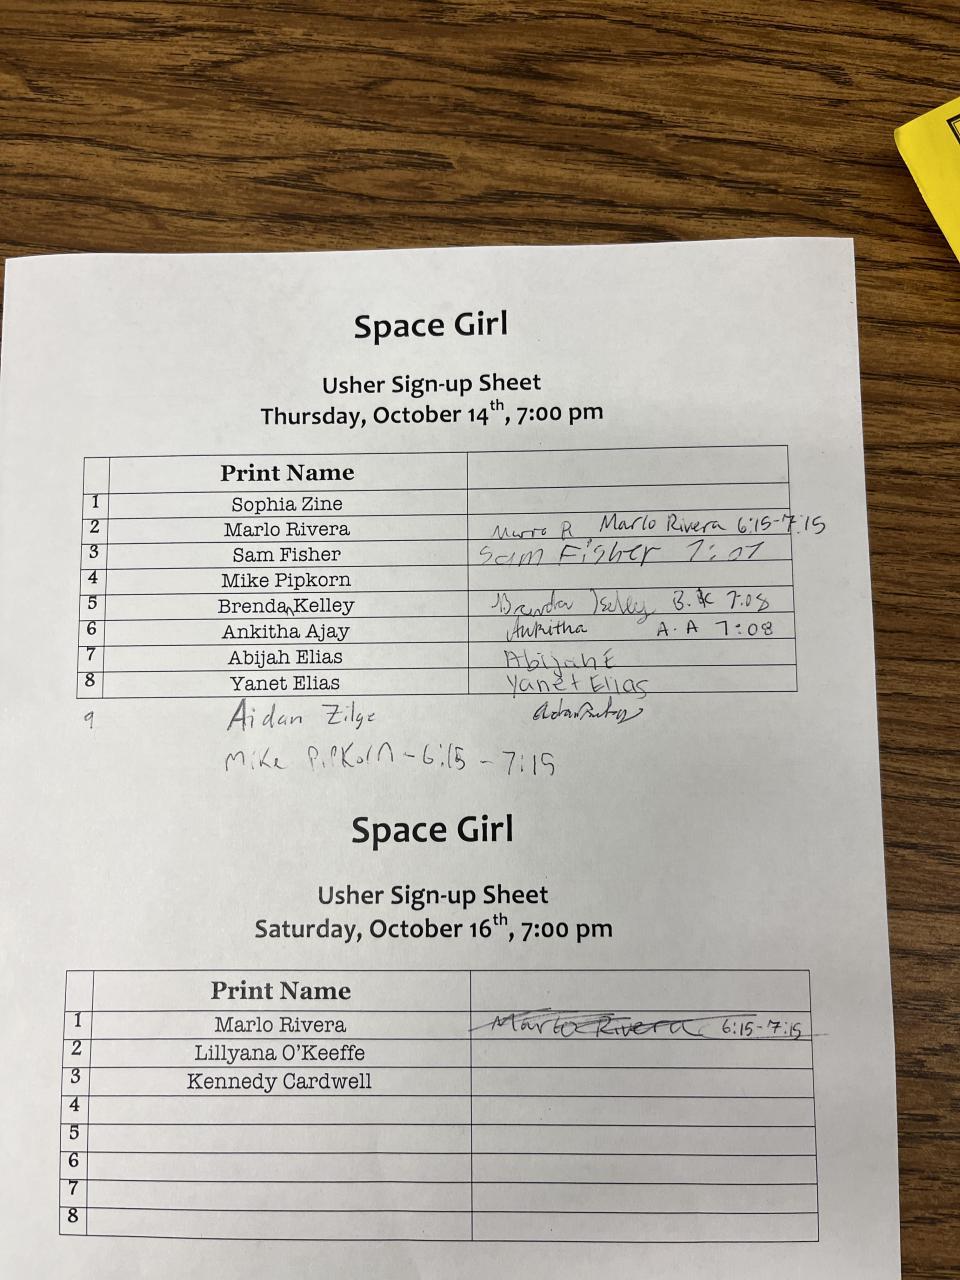 Space Girl
Usher Sign-up Sheet
Thursday, October 14th, 7:00 pm
Print Name
1 Sophia Zine
2 Marlo Rivera Marlo R Marlo Rivera 6:15-7:15
3 Sam Fisher Sam Fisher 7:07
4 Mike Pipkorn
5 Brenda Kelley Brenda Kelley B.K 7:08
6 Ankitha Ajay Ankitha A.A 7:08
7 Abijah Elias Abijah E
8 Yanet Elias Yanet Elias
9 Aidan Zilge
Mike PiPKorn - 6:15 - 7:15
Space Girl
Usher Sign-up Sheet
Saturday, October 16th, 7:00 pm
Print Name
1 Marlo Rivera Marlo Rivera 6:15-7:15
2 Lillyana O'Keeffe
3 Kennedy Cardwell
4
5
6
7
8